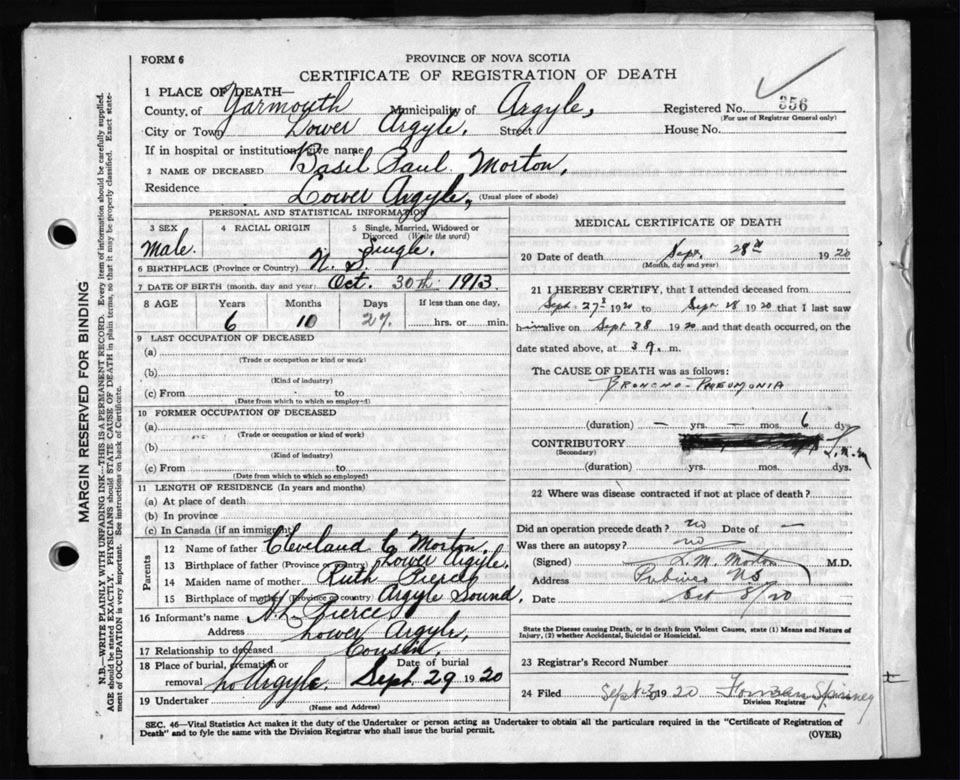 FORM 6
PROVINCE OF NOVA SCOTIA
CERTIFICATE OF REGISTRATION OF DEATH
1 PLACE OF DEATH—
County, of Yarmouth Municipality of Argyle, Registered No. 356
(For use of Registrar General only)
City or Town Lower Argyle, Street House No.
If in hospital or institution, give name
2 NAME OF DECEASED Basil Paul Morton,
Residence Lower Argyle, (Usual place of abode)
PERSONAL AND STATISTICAL INFORMATION
3 SEX 4 RACIAL ORIGIN 5 Single, Married, Widowed or Divorced (Write the word)
Male. Single.
6 BIRTHPLACE (Province or Country) N. S.
7 DATE OF BIRTH (month, day and year) Oct. 30th 1913
8 AGE Years Months Days If less than one day,
6 10 27 hrs. or min.
9 LAST OCCUPATION OF DECEASED
(a)
(Trade or occupation or kind or work)
(b)
(Kind of industry)
(c) From to
(Date from which to which so employed)
10 FORMER OCCUPATION OF DECEASED
(a)
(Trade or occupation or kind of work)
(b)
(Kind of industry)
(c) From to
(Date from which to which so employed)
11 LENGTH OF RESIDENCE (In years and months)
(a) At place of death
(b) In province
(c) In Canada (if an immigrant)
Parents
12 Name of father Cleveland C Morton.
13 Birthplace of father (Province or Country) Lower Argyle.
14 Maiden name of mother Ruth Pierce
15 Birthplace of mother (Province or country) Argyle Sound.
16 Informant's name Pierce
Address Lower Argyle.
17 Relationship to deceased Cousin.
18 Place of burial, cremation or removal Lo Argyle. Date of burial Sept. 29 1920
19 Undertaker
(Name and Address)
MEDICAL CERTIFICATE OF DEATH
20 Date of death Sept. 28th 1920
(Month, day and year)
21 I HEREBY CERTIFY, that I attended deceased from
Sept. 27 1920 to Sept 28 1920 that I last saw
him alive on Sept 28 1920 and that death occurred, on the
date stated above, at 3 A. m.
The CAUSE OF DEATH was as follows:
BRONCHO-PNEUMONIA
(duration) — yrs. — mos. 6 dys.
CONTRIBUTORY
(Secondary)
(duration) yrs. mos. dys.
22 Where was disease contracted if not at place of death?
Did an operation precede death? no Date of —
Was there an autopsy? no
(Signed) L. M. Morton M.D.
Address Pubnico NS
Date Oct 8/20
State the Disease causing Death, or in death from Violent Causes, state (1) Means and Nature of
Injury, (2) whether Accidental, Suicidal or Homicidal.
23 Registrar's Record Number
24 Filed Sept 30 1920 Forman Spinney
Division Registrar
SEC. 46—Vital Statistics Act makes it the duty of the Undertaker or person acting as Undertaker to obtain all the particulars required in the "Certificate of Registration of
Death" and to fyle the same with the Division Registrar who shall issue the burial permit.
(OVER)
MARGIN RESERVED FOR BINDING
N.B.—WRITE PLAINLY WITH UNFADING INK—THIS IS A PERMANENT RECORD. Every item of information should be carefully supplied.
AGE should be stated EXACTLY. PHYSICIANS should STATE CAUSE OF DEATH in plain terms, so that it may be properly classified. Exact state-
ment of OCCUPATION is very important. See instructions on back of Certificate.